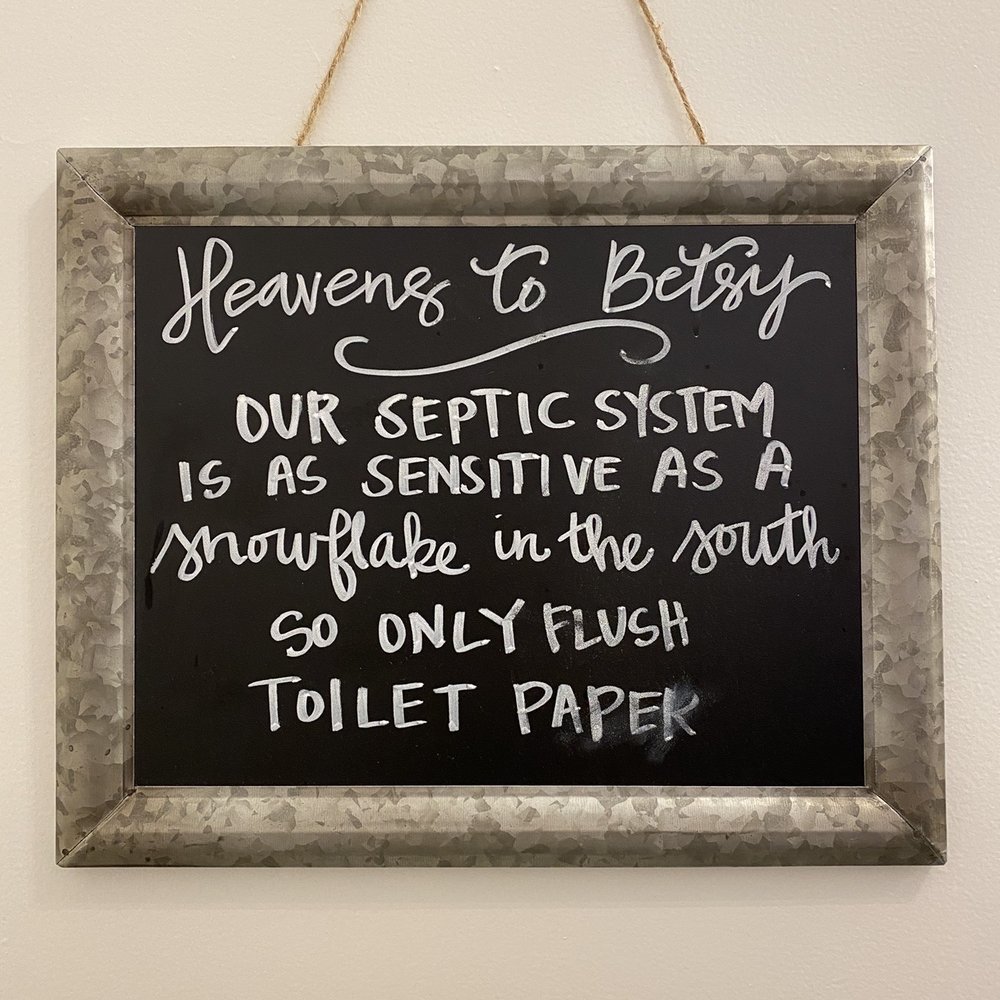 Heavens to Betsy
OUR SEPTIC SYSTEM
IS AS SENSITIVE AS A
snowflake in the south
SO ONLY FLUSH
TOILET PAPER